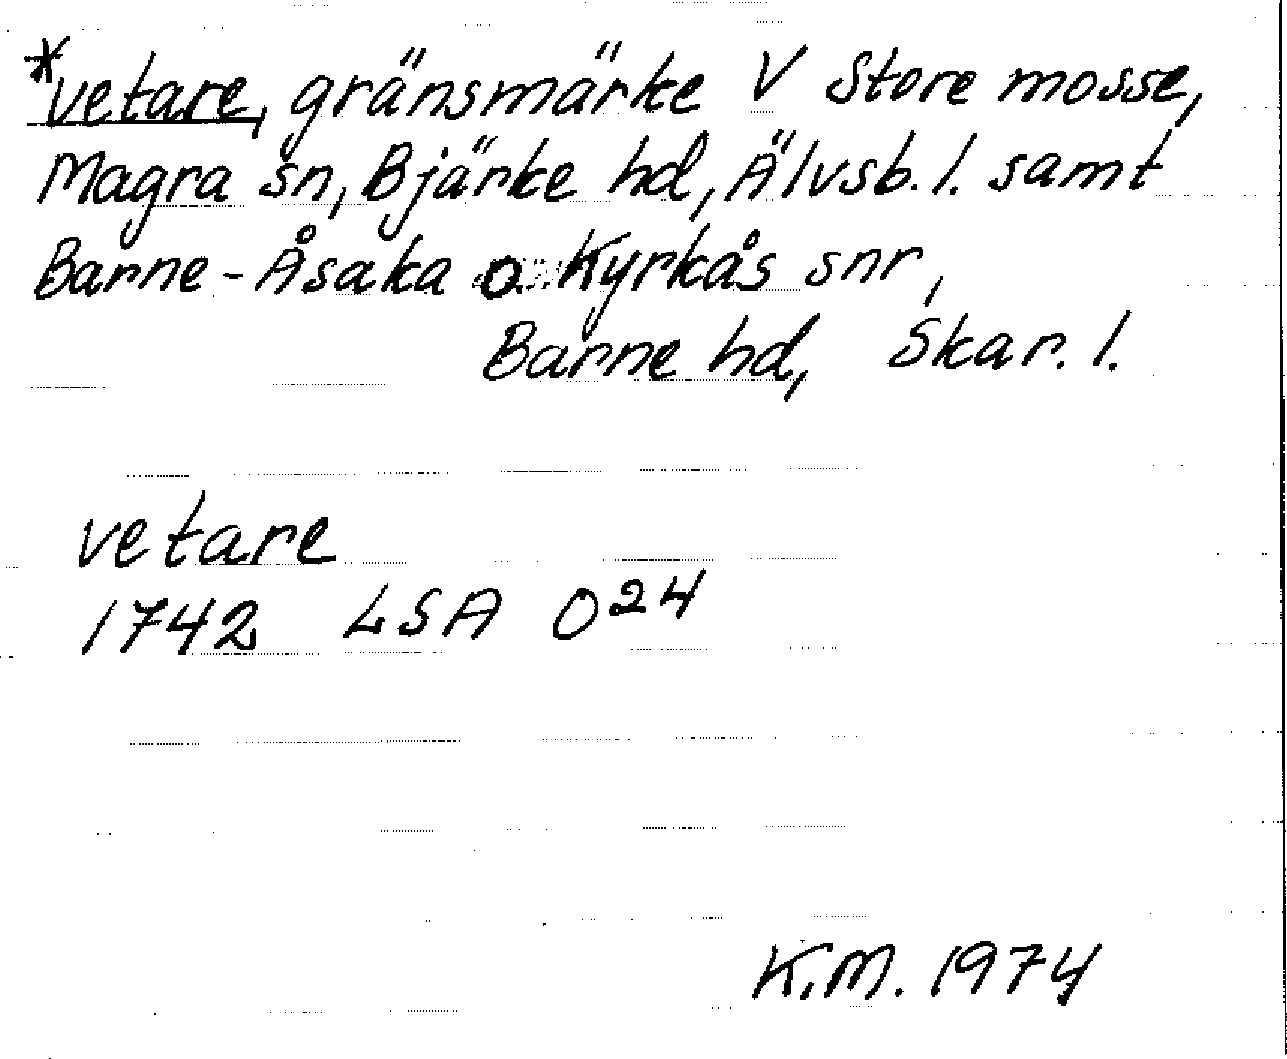 *vetare, gränsmärke V Store mosse,
Magra sn, Bjärke hd, Älvsb. l. samt
Barne-Åsaka o. Kyrkås snr,
Barne hd, Skar. l.
vetare
1742 LSA O24
K.M. 1974